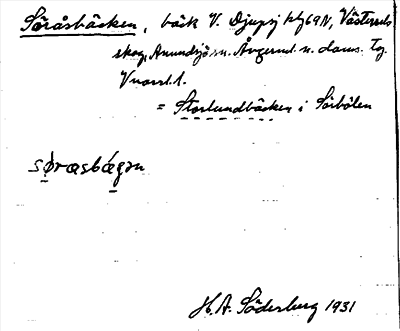 Söråsbäcken, bäck V. Djupsj hfg 69N, Västersels
skog, Anundsjö sn. Ångerml. n. doms. Tg.
Vnorrl. l.
= Storlundbäcken i Sörbölen
H. A. Söderberg 1931